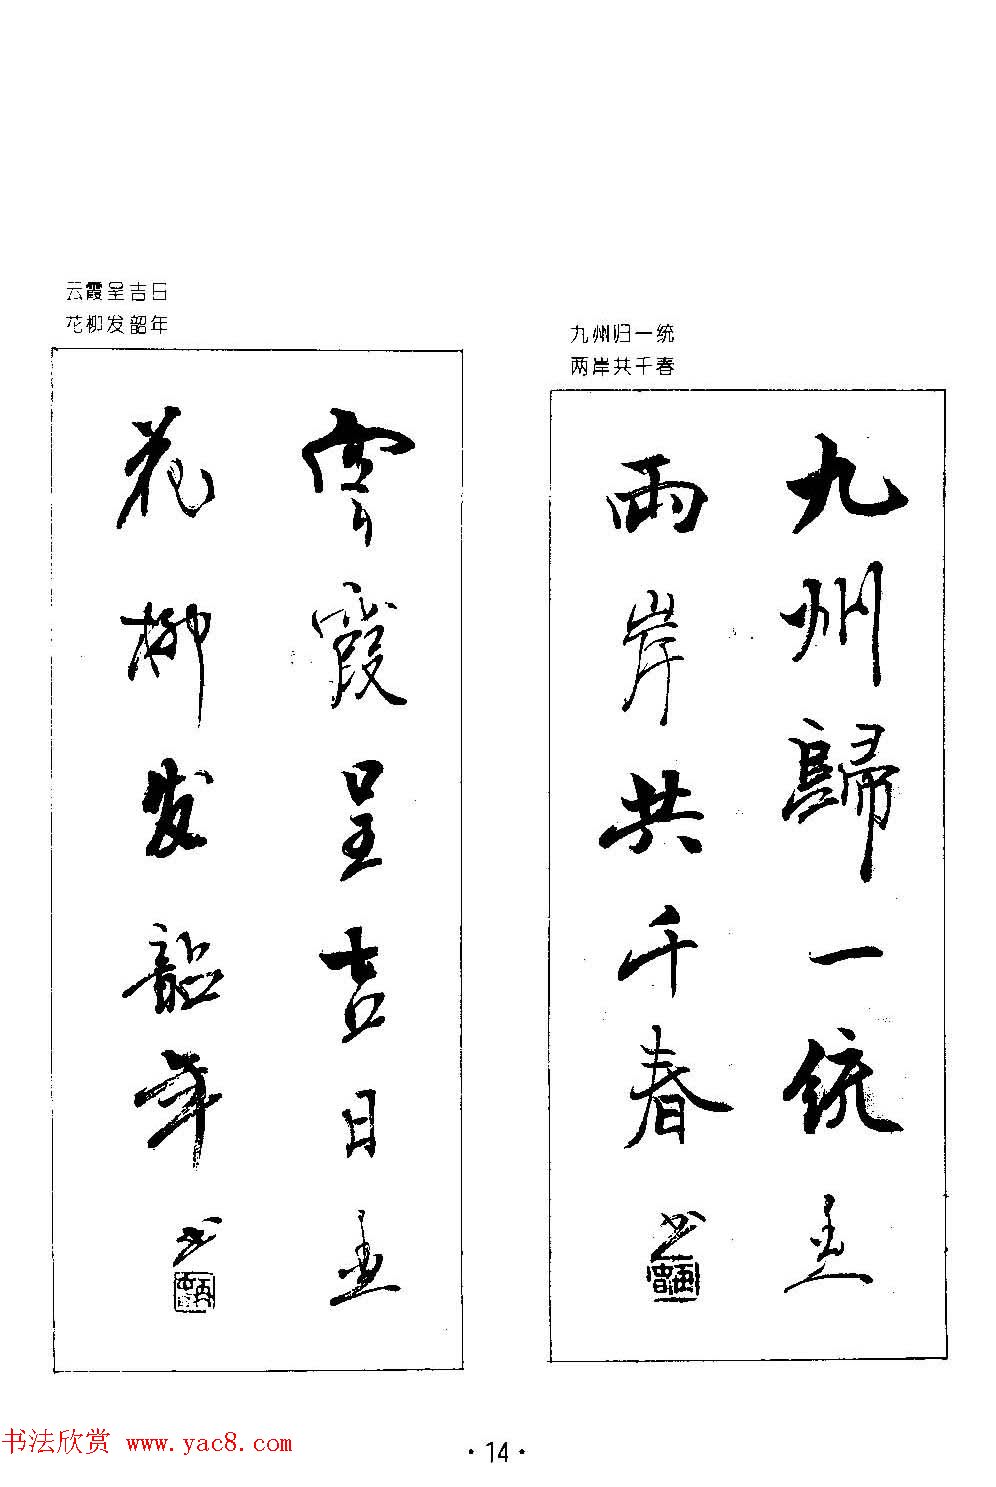 云霞呈吉日
花柳发韶年
雲霞呈吉日
花柳发韶年
书
九州归一统
两岸共千春
九州歸一統
兩岸共千春
书
书法欣赏 www.yac8.com
·14·